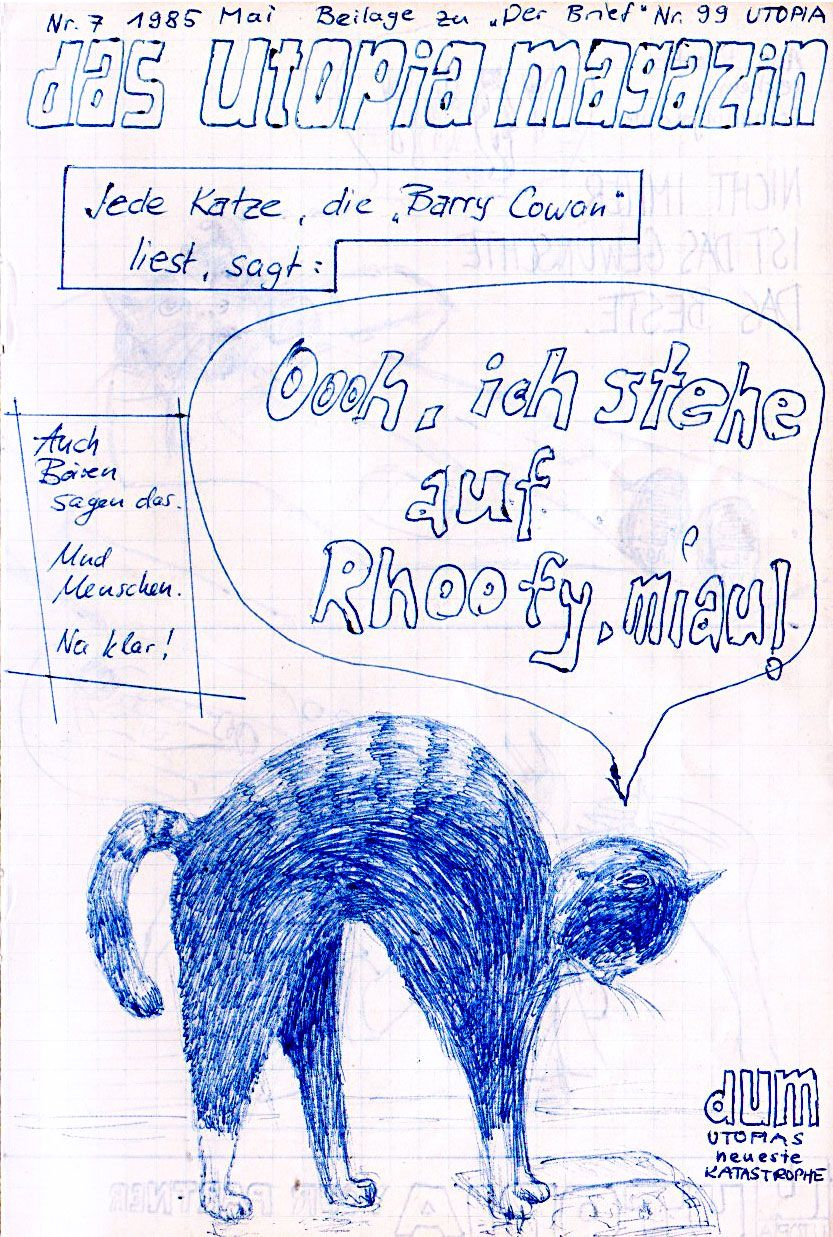 Nr. 7 1985 Mai Beilage zu „Der Brief“ Nr. 99 UTOPIA
das utopia magazin
Jede Katze, die „Barry Cowan“
liest, sagt:
Oooh, ich stehe
auf
Rhoofy, miau!
Auch
Bären
sagen das.
Und
Menschen.
Na klar!
NICHT IMMER
IST DAS GEWÜNSCHTE
DAS BESTE.
dum
UTOPIAS
neueste
KATASTROPHE